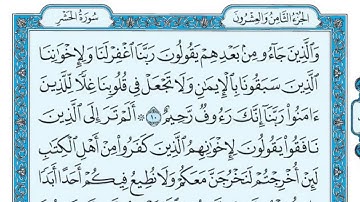 سُورَةُ الحَشْرِ الجُزْءُ الثَّامِنُ وَالعِشْرُونَ
وَٱلَّذِينَ جَآءُو مِنۢ بَعۡدِهِمۡ يَقُولُونَ رَبَّنَا ٱغۡفِرۡ لَنَا وَلِإِخۡوَٰنِنَا
ٱلَّذِينَ سَبَقُونَا بِٱلۡإِيمَٰنِ وَلَا تَجۡعَلۡ فِي قُلُوبِنَا غِلّٗا لِّلَّذِينَ
ءَامَنُواْ رَبَّنَآ إِنَّكَ رَءُوفٞ رَّحِيمٌ ١٠ ۞ أَلَمۡ تَرَ إِلَى ٱلَّذِينَ
نَافَقُواْ يَقُولُونَ لِإِخۡوَٰنِهِمُ ٱلَّذِينَ كَفَرُواْ مِنۡ أَهۡلِ ٱلۡكِتَٰبِ
لَئِنۡ أُخۡرِجۡتُمۡ لَنَخۡرُجَنَّ مَعَكُمۡ وَلَا نُطِيعُ فِيكُمۡ أَحَدًا أَبَدٗا